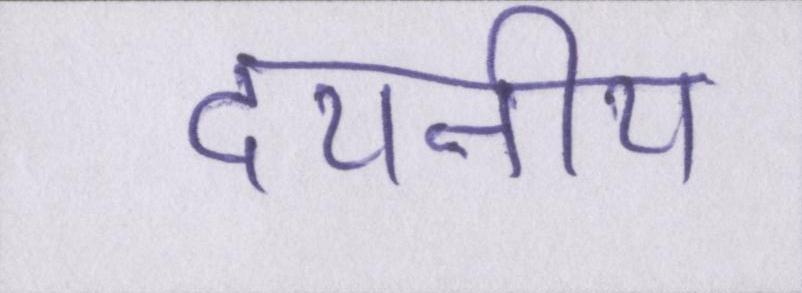 दयनीय